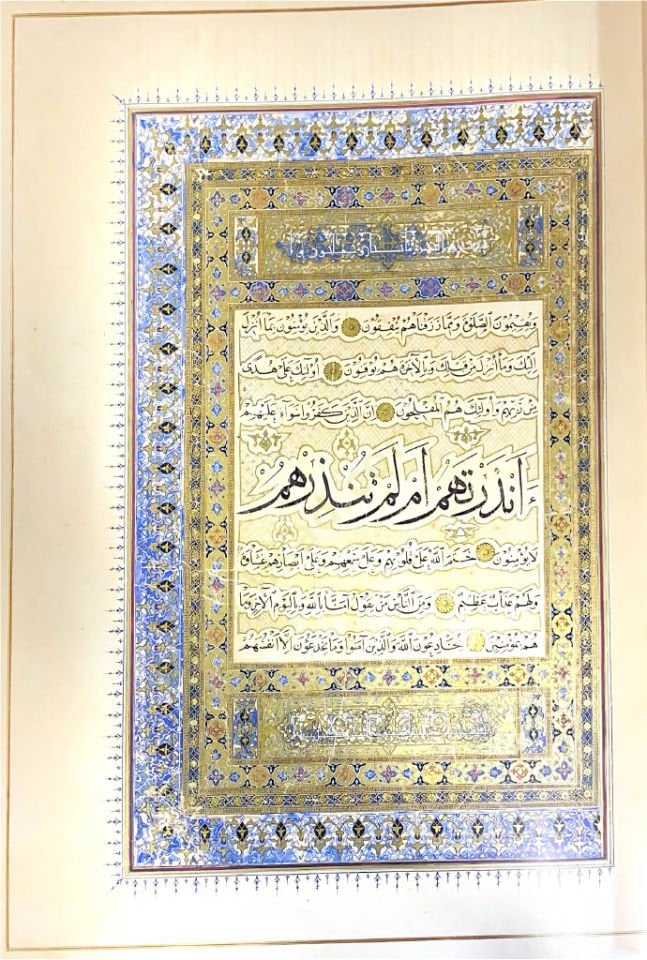 وَيُقِيمُونَ الصَّلٰوةَ وَمِمَّا رَزَقْنَاهُمْ يُنْفِقُونَ وَالَّذِينَ يُؤْمِنُونَ بِمَا اُنْزِلَ
اِلَيْكَ وَمَا اُنْزِلَ مِنْ قَبْلِكَ وَبِالْاٰخِرَةِ هُمْ يُوقِنُونَ اُولٰئِكَ عَلٰى هُدًى
مِنْ رَبِّهِمْ وَاُولٰئِكَ هُمُ الْمُفْلِحُونَ اِنَّ الَّذِينَ كَفَرُوا سَوَاءٌ عَلَيْهِمْ
ءَاَنْذَرْتَهُمْ اَمْ لَمْ تُنْذِرْهُمْ
لَا يُؤْمِنُونَ خَتَمَ اللّٰهُ عَلٰى قُلُوبِهِمْ وَعَلٰى سَمْعِهِمْ وَعَلٰى اَبْصَارِهِمْ غِشَاوَةٌ
وَلَهُمْ عَذَابٌ عَظِيمٌ وَمِنَ النَّاسِ مَنْ يَقُولُ اٰمَنَّا بِاللّٰهِ وَبِالْيَوْمِ الْاٰخِرِ وَمَا
هُمْ بِمُؤْمِنِينَ يُخَادِعُونَ اللّٰهَ وَالَّذِينَ اٰمَنُوا وَمَا يَخْدَعُونَ اِلَّا اَنْفُسَهُمْ